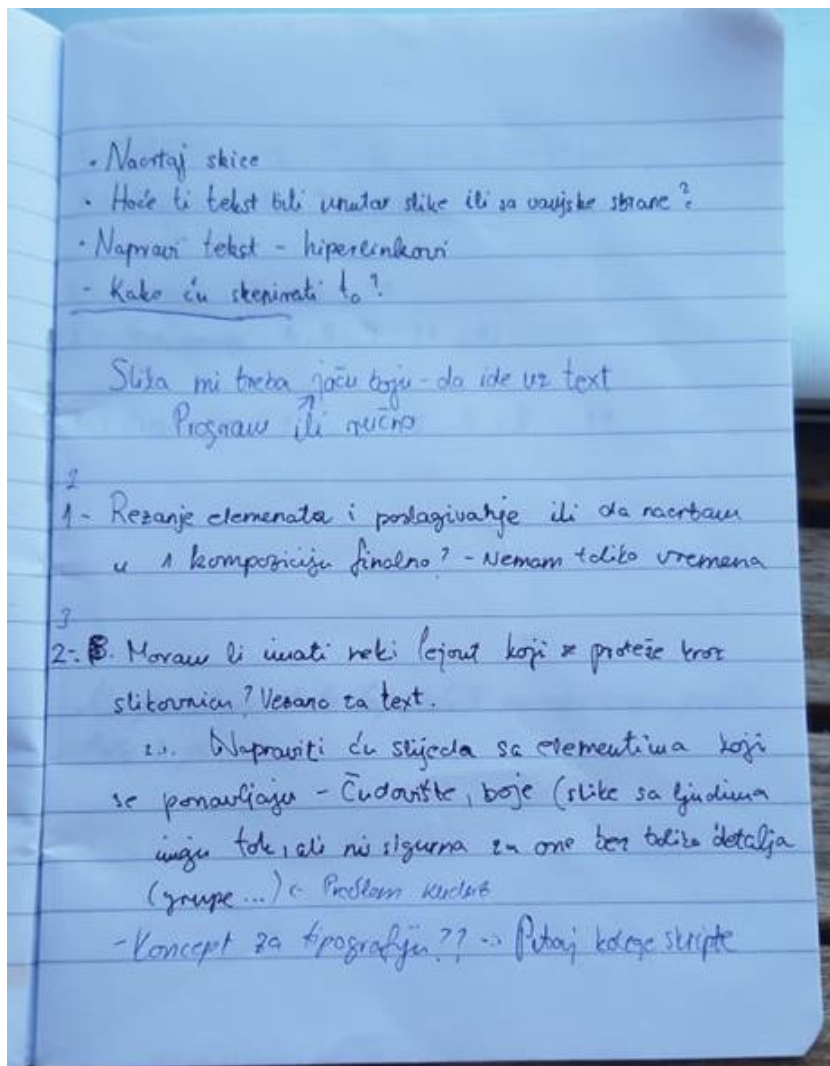 · Nacrtaj skice
· Hoće li tekst biti unutar slike ili sa vanjske strane?
· Napravi tekst - hiperlinkovi
- Kako ću skenirati to?
Slika mi treba jaču boju - da ide uz text
Program ili ručno
2
1 - Rezanje elemenata i poslagivanje ili da nacrtam
u 1 kompoziciju finalno? - Nemam toliko vremena
3
2-. Moram li imati neki lejout koji se proteže kroz
slikovnicu? Vezano za text.
Napraviti ću slijeda sa elementima koji
se ponavljaju - Čudovište, boje (slike sa ljudima
imaju tok, ali ni sigurna za one bez toliko detalja
(grupe...) <- Problem
- Koncept za tipografiju?? -> Pitaj kolege skripte